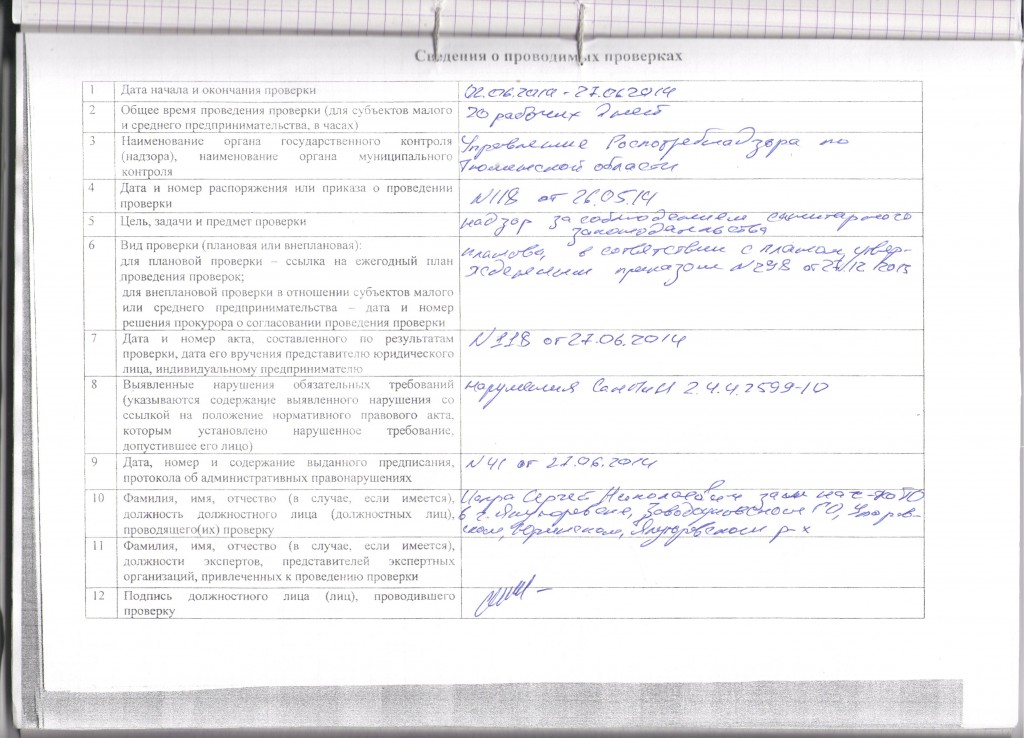 Сведения о проводимых проверках
1 Дата начала и окончания проверки 02.06.2014 - 27.06.2014
2 Общее время проведения проверки (для субъектов малого 20 рабочих дней
и среднего предпринимательства, в часах)
3 Наименование органа государственного контроля Управление Роспотребнадзора по
(надзора), наименование органа муниципального Тюменской области
контроля
4 Дата и номер распоряжения или приказа о проведении
проверки N118 от 26.05.14
5 Цель, задачи и предмет проверки надзор за соблюдением санитарного
законодательства
6 Вид проверки (плановая или внеплановая): планова, в сответствии с планом, утвер-
для плановой проверки – ссылка на ежегодный план жденным приказом N298 от 27/12 2013
проведения проверок;
для внеплановой проверки в отношении субъектов малого
или среднего предпринимательства – дата и номер
решения прокурора о согласовании проведения проверки
7 Дата и номер акта, составленного по результатам N118 от 27.06.2014
проверки, дата его вручения представителю юридического
лица, индивидуальному предпринимателю
8 Выявленные нарушения обязательных требований нарушения СанПиН 2.4.4.2599-10
(указываются содержание выявленного нарушения со
ссылкой на положение нормативного правового акта,
которым установлено нарушенное требование,
допустившее его лицо)
9 Дата, номер и содержание выданного предписания, N41 от 27.06.2014
протокола об административных правонарушениях
10 Фамилия, имя, отчество (в случае, если имеется), Сергей Николаевич зам нач-ка ТО
должность должностного лица (должностных лиц), в г. Ялуторовске, Заводоуковском ГО, Упоров-
проводящего(их) проверку ском, Юргинском, Ялуторовском р-х
11 Фамилия, имя, отчество (в случае, если имеется),
должности экспертов, представителей экспертных
организаций, привлеченных к проведению проверки
12 Подпись должностного лица (лиц), проводившего
проверку